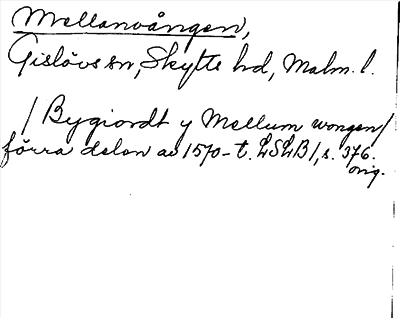 Mellanvången,
Gislövs sn, Skytts hd, Malm. l.
/ Bygiordt y Mellum wongen /
förra delen av 1570-t. LSLB 1, s. 376.
orig.